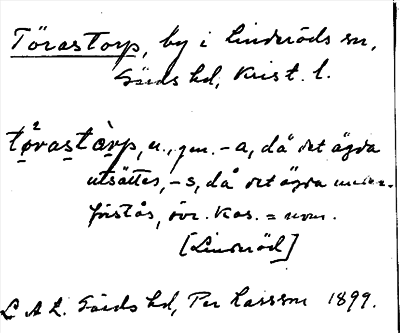 Törastorp, by i Linderöds sn,
Gärds hd, Krist. l.
tø²rastàrp, n., gen. -a, då det ägda
utsättes, -s, då det ägda under-
förstås, övr. kas. = nom.
[Linderöd]
L A L. Gärds hd, Per Larsson 1899.